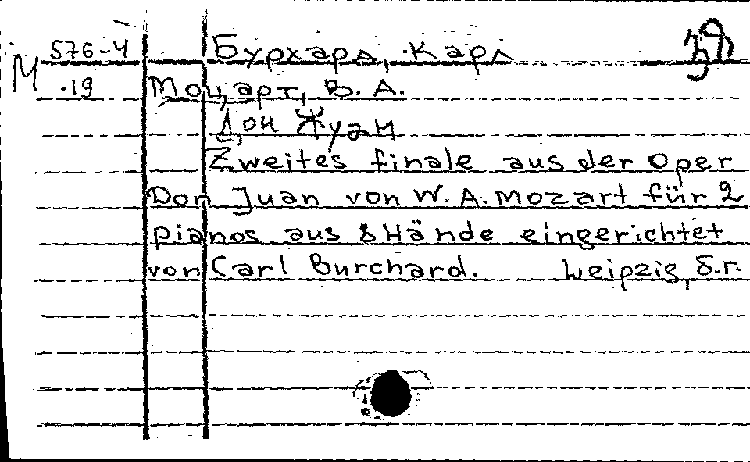 М 576-4 Бурхард, Карл
.19 Моцарт, В. А.
Дон Жуан
Zweites finale aus der Oper
Don Juan von W. A. Mozart für 2
pianos aus 8 Hände eingerichtet
von Carl Burchard. Leipzig, s.r.